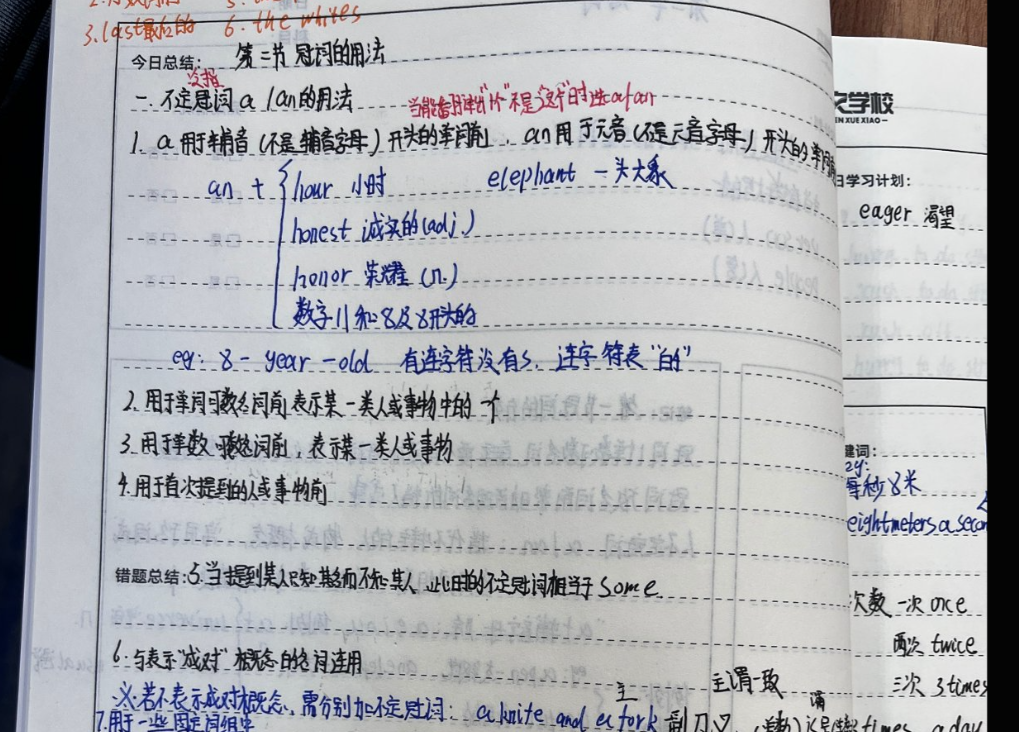 3.last最后的 6.the whites
今日总结: 第二节 冠词的用法
泛指
一.不定冠词a/an的用法 当能翻译出"一个"不是"这个"时选a/an
1. a用于辅音(不是辅音字母)开头的单词前, an用于元音(不是元音字母)开头的单词前
an + { hour 小时 elephant 一头大象
honest 诚实的(adj.)
honor 荣耀(n.)
数字11和8及8开头的
eg: 8-year-old 有连字符没有s. 连字符表"的"
2.用于单词可数名词前,表示某一类人或事物中的一个
3.用于单数可数名词前,表示某一类人或事物
4.用于首次提到的人或事物前
错题总结: 5.当提到某人只知其名而不知其人 此时的不定冠词相当于some
6.与表示"成对"概念的名词连用
主谓一致
※若不表示成对概念,需分别加不定冠词: a knife and a fork 副刀叉
7.用于一些固定词组中
文学校
EN XUE XIAO
日学习计划:
eager 渴望
键词:
每秒8米
eight meters a secon
次数 一次 once
两次 twice
三次 3 times
times a day